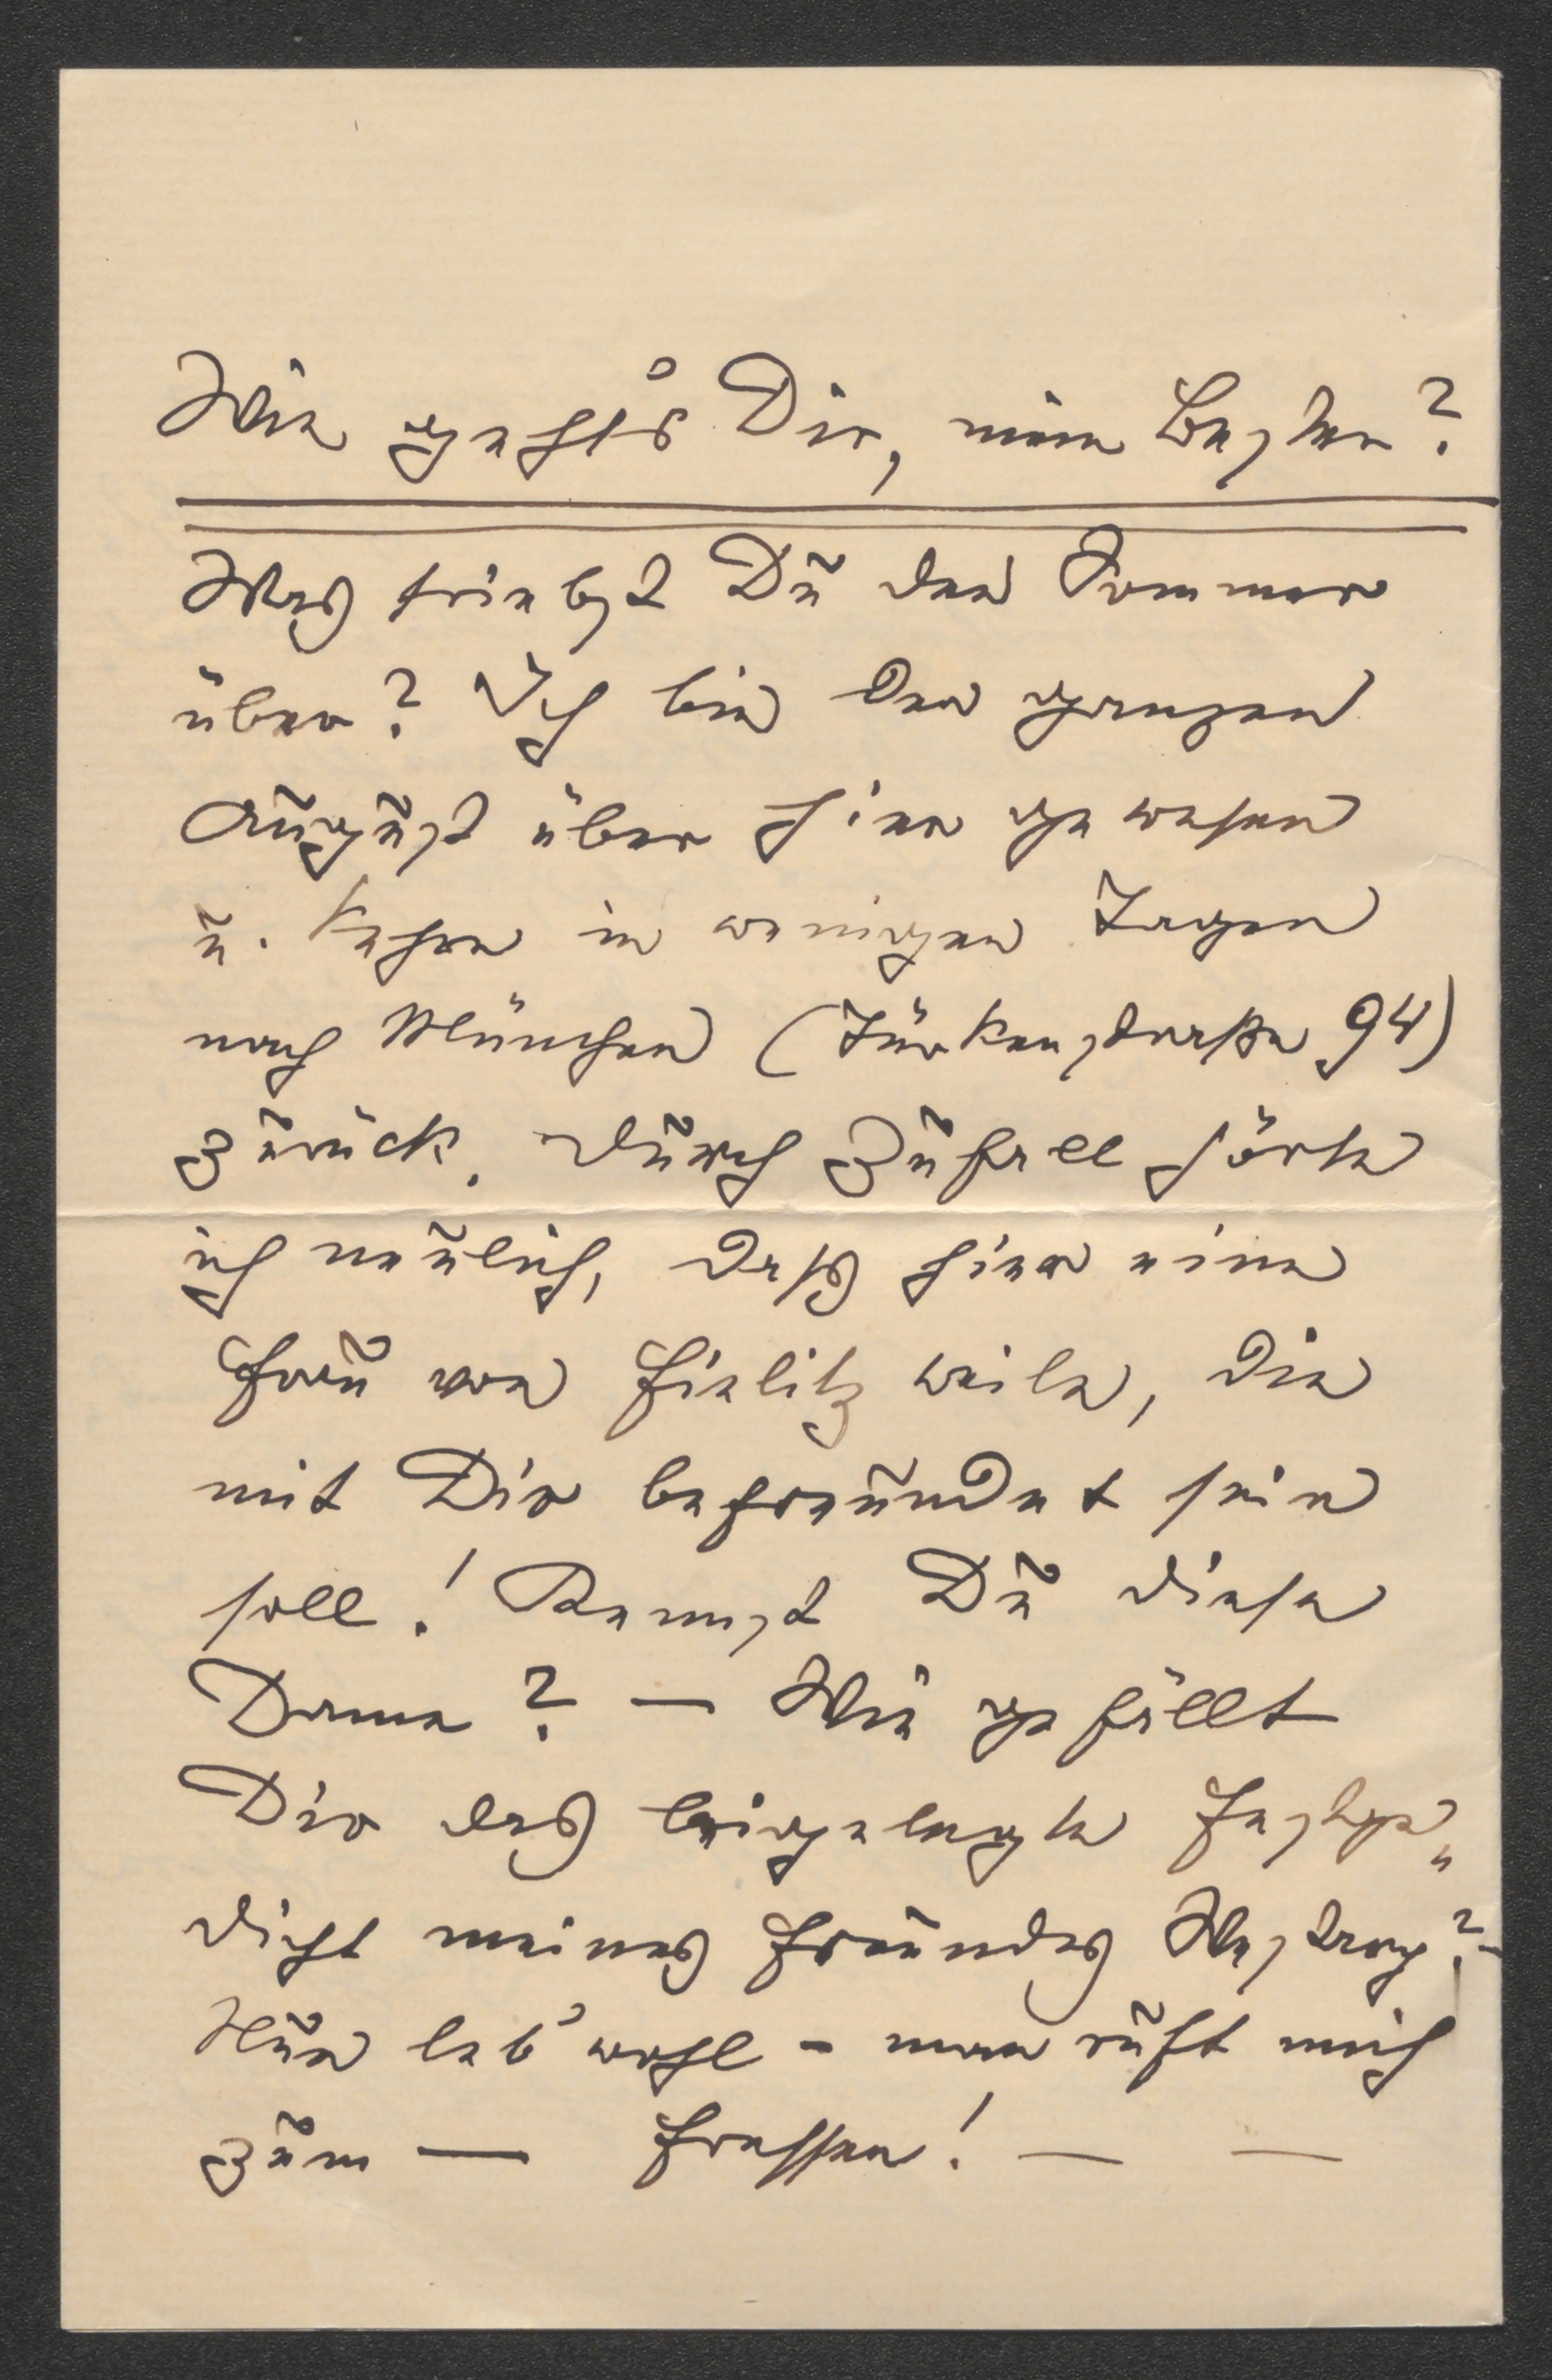 Wie geht's Dir, mein Bester?
Was triebst Du den Sommer
über? Ich bin den ganzen
August über hier gewesen
u. kehre in wenigen Tagen
nach München (Türkenstraße 94)
zurück. Durch Zufall hörte
ich neulich, daß hier eine
Frau von Fielitz weile, die
mit Dir befreundet sein
soll! Kennst Du diese
Dame? — Wie gefällt
Dir das beigelegte Festge„
dicht meines Freundes Westarp? –
Nun leb' wohl – man ruft mich
zum — Fressen! — —